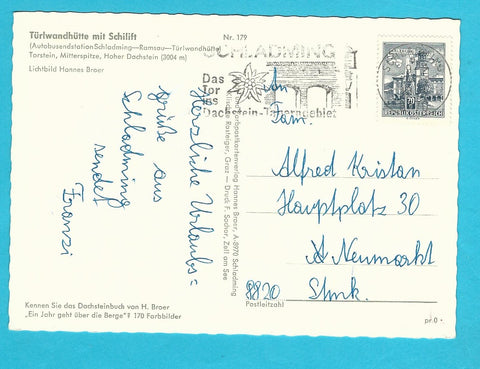 Türlwandhütte mit Schilift
(Autobusendstation Schladming—Ramsau—Türlwandhütte)
Torstein, Mitterspitze, Hoher Dachstein (3004 m)
Lichtbild Hannes Broer
Nr. 179
SCHLADMING
Das
Tor
ins
Dachstein-Tauerngebiet
REPUBLIK ÖSTERREICH
Herzliche Urlaubs=
grüße aus
Schladming
sendet
Franzi
Hannes Broer, A-8970 Schladming
Graz — Druck F. Sochor, Zell am See
An
Fam.
Alfred Kristan
Hauptplatz 30
A Neumarkt
8820 Stmk.
Postleitzahl
Kennen Sie das Dachsteinbuch von H. Broer
„Ein Jahr geht über die Berge"? 170 Farbbilder